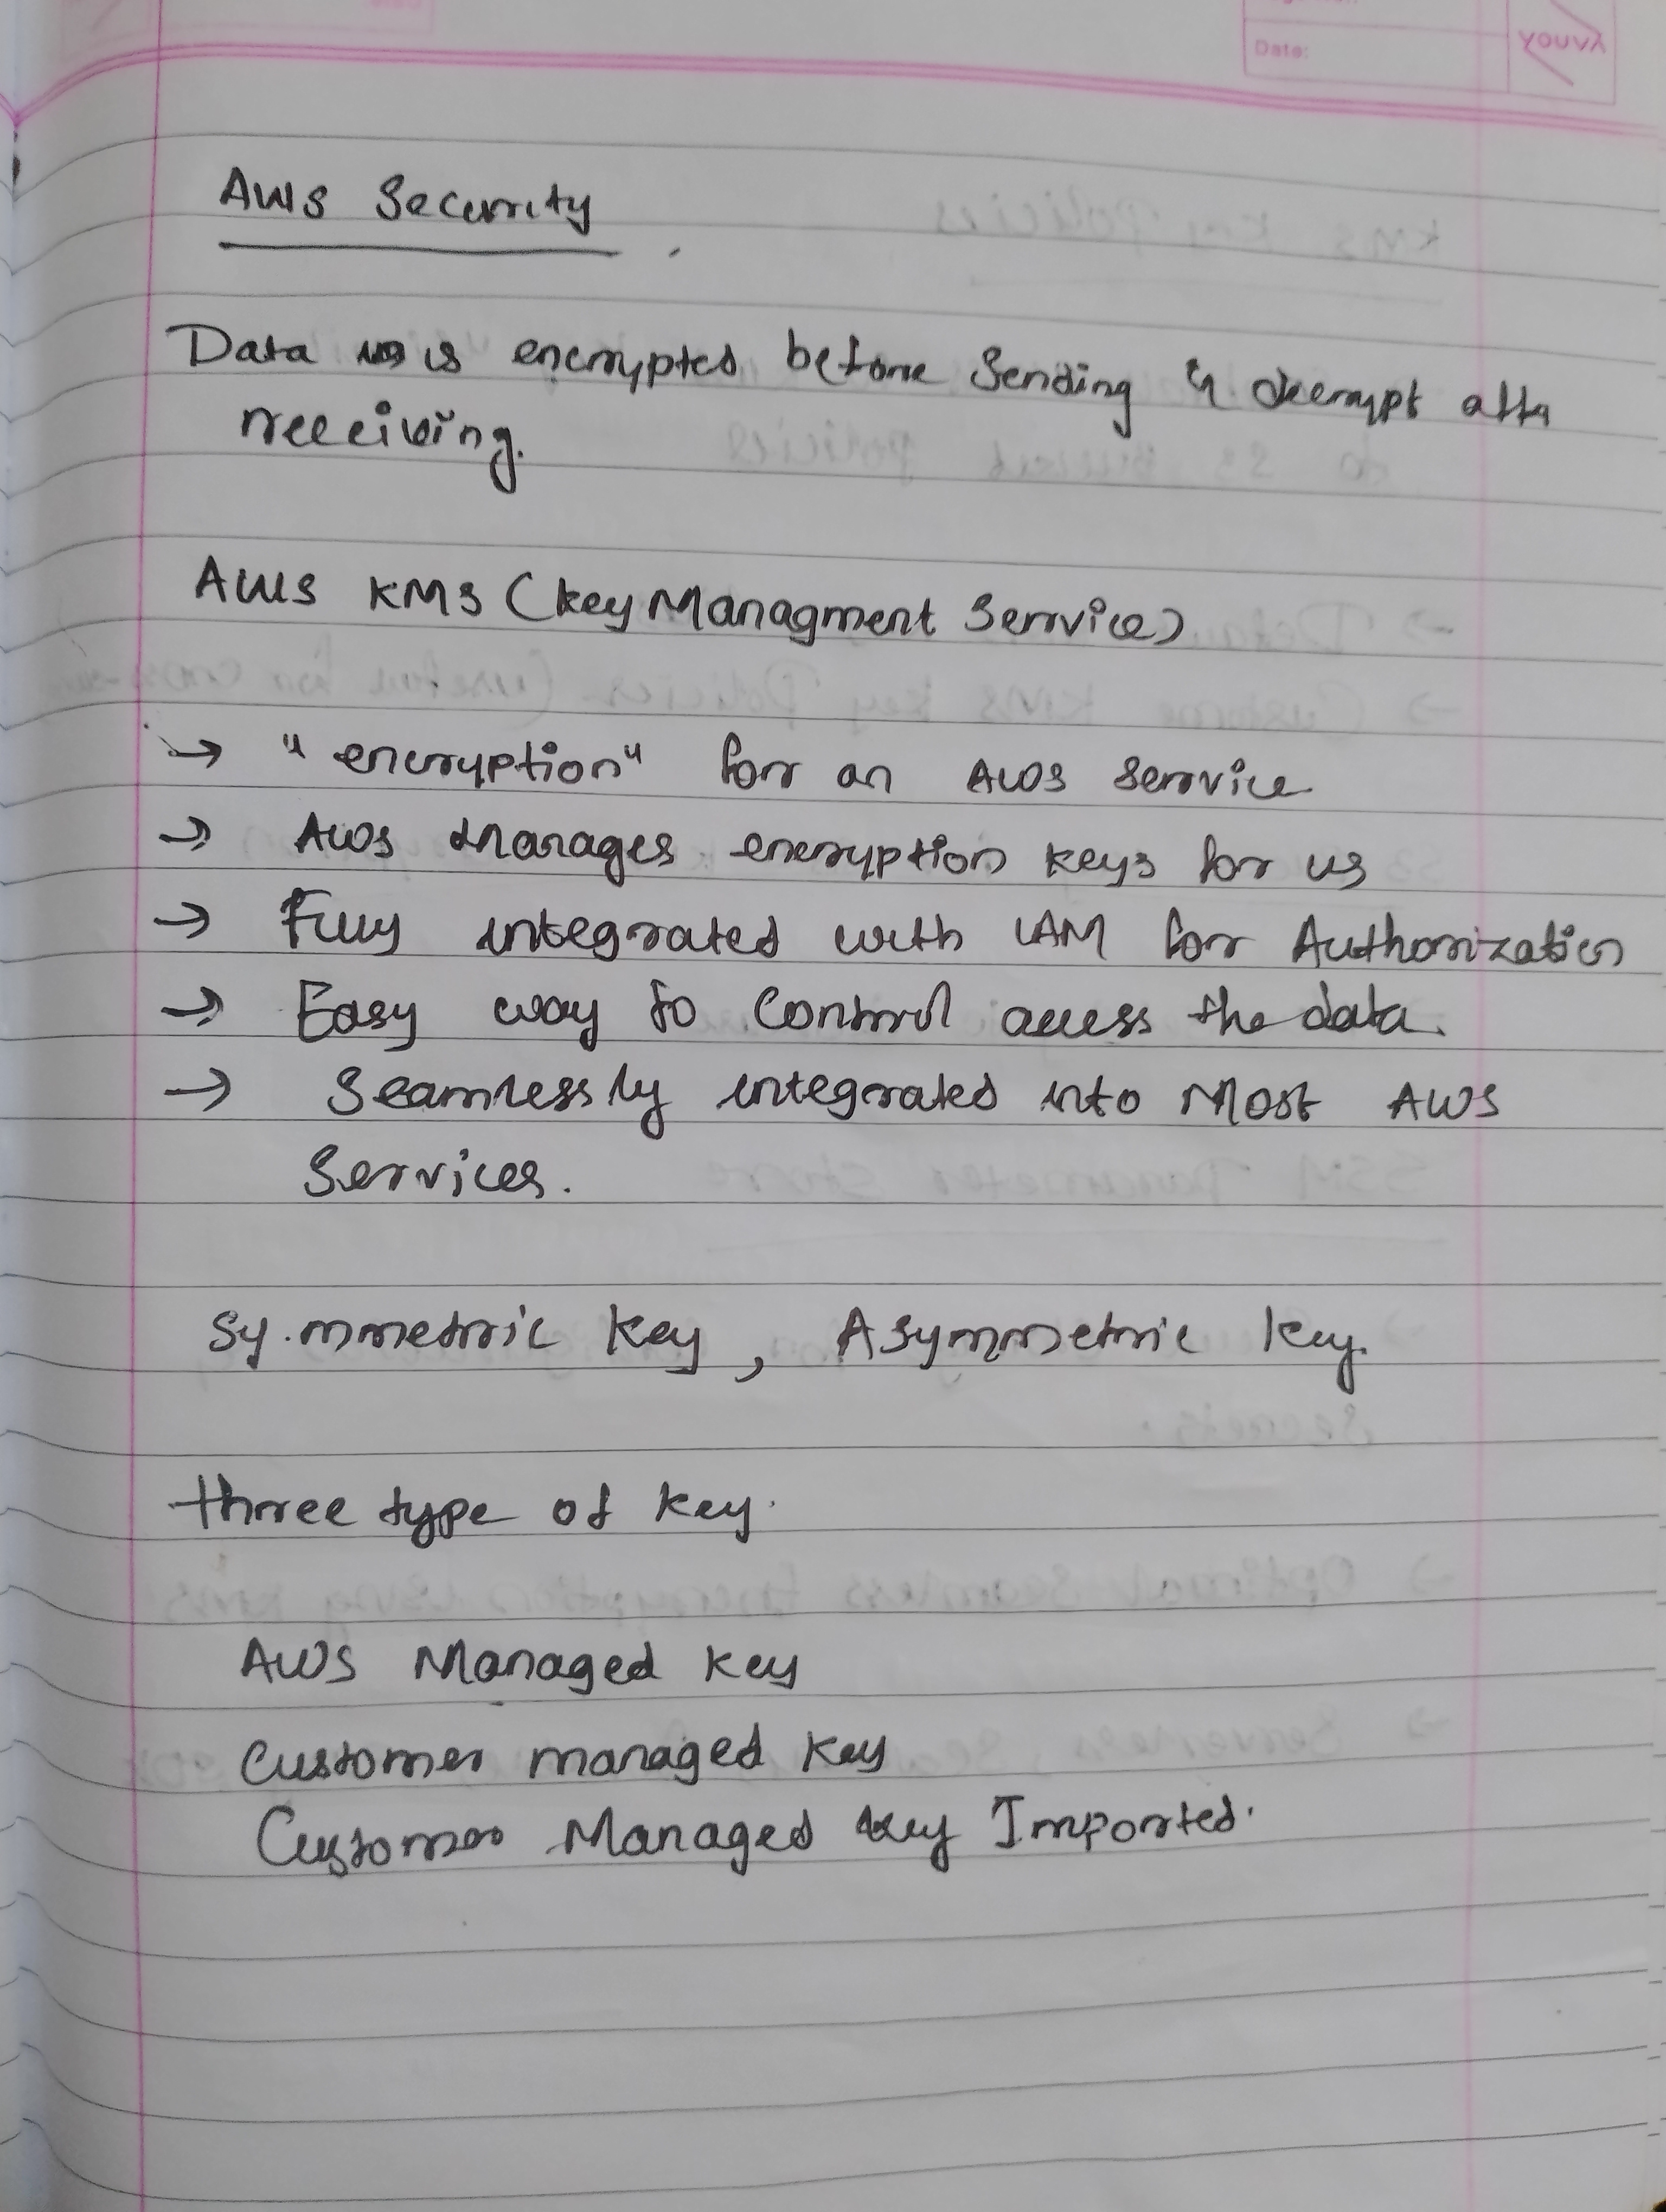 Date:
YOUVA
AWS Security
Data is encrypted before sending & decrypt after
receiving.
AWS KMS (Key Managment Service)
→ "encryption" for an AWS service
→ AWS Manages encryption keys for us
→ Fully integrated with IAM for Authorization
→ Easy way to Control access the data.
→ Seamlessly integrated into Most AWS
Services.
Symmetric Key, Asymmetric key.
three type of key.
AWS Managed key
Customer managed key
Customer Managed key Imported.